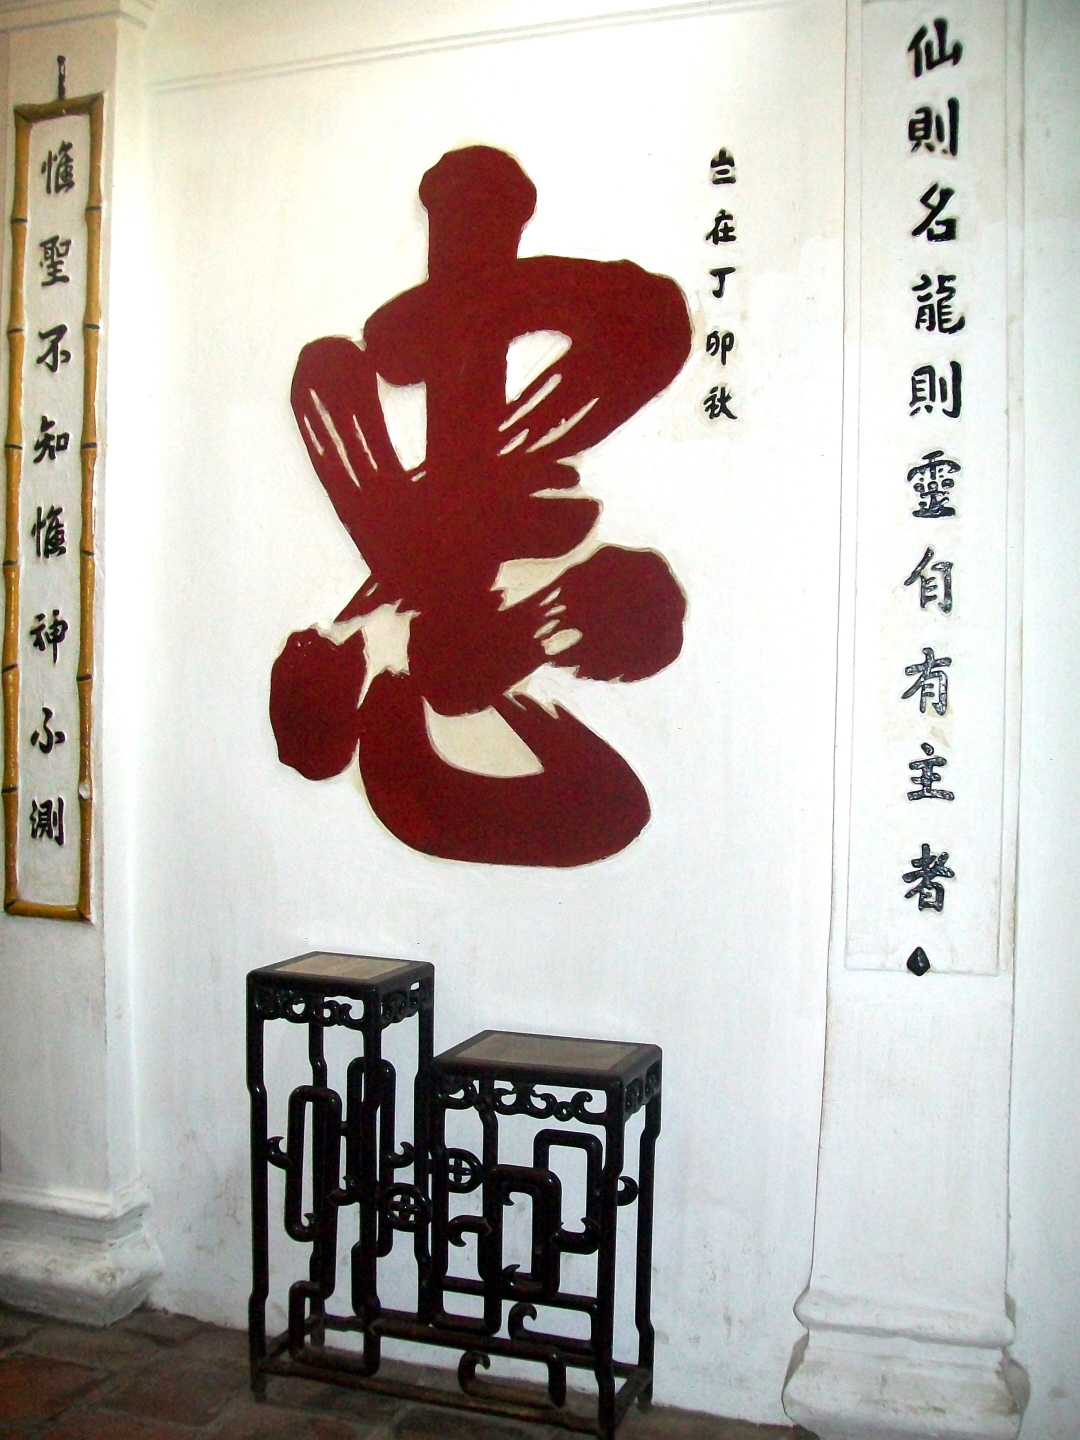 仙則名龍則靈自有主者
亗在丁卯秋
忠
惟聖不知惟神不測